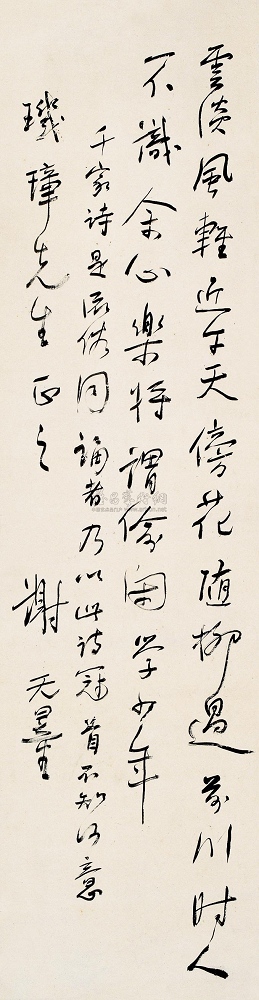 雲淡風輕近午天傍花随柳過前川时人
不識余心樂将謂偷閑学少年
千家詩是流俗同誦者乃以此诗冠首不知何意
璣璋先生正之
謝无量